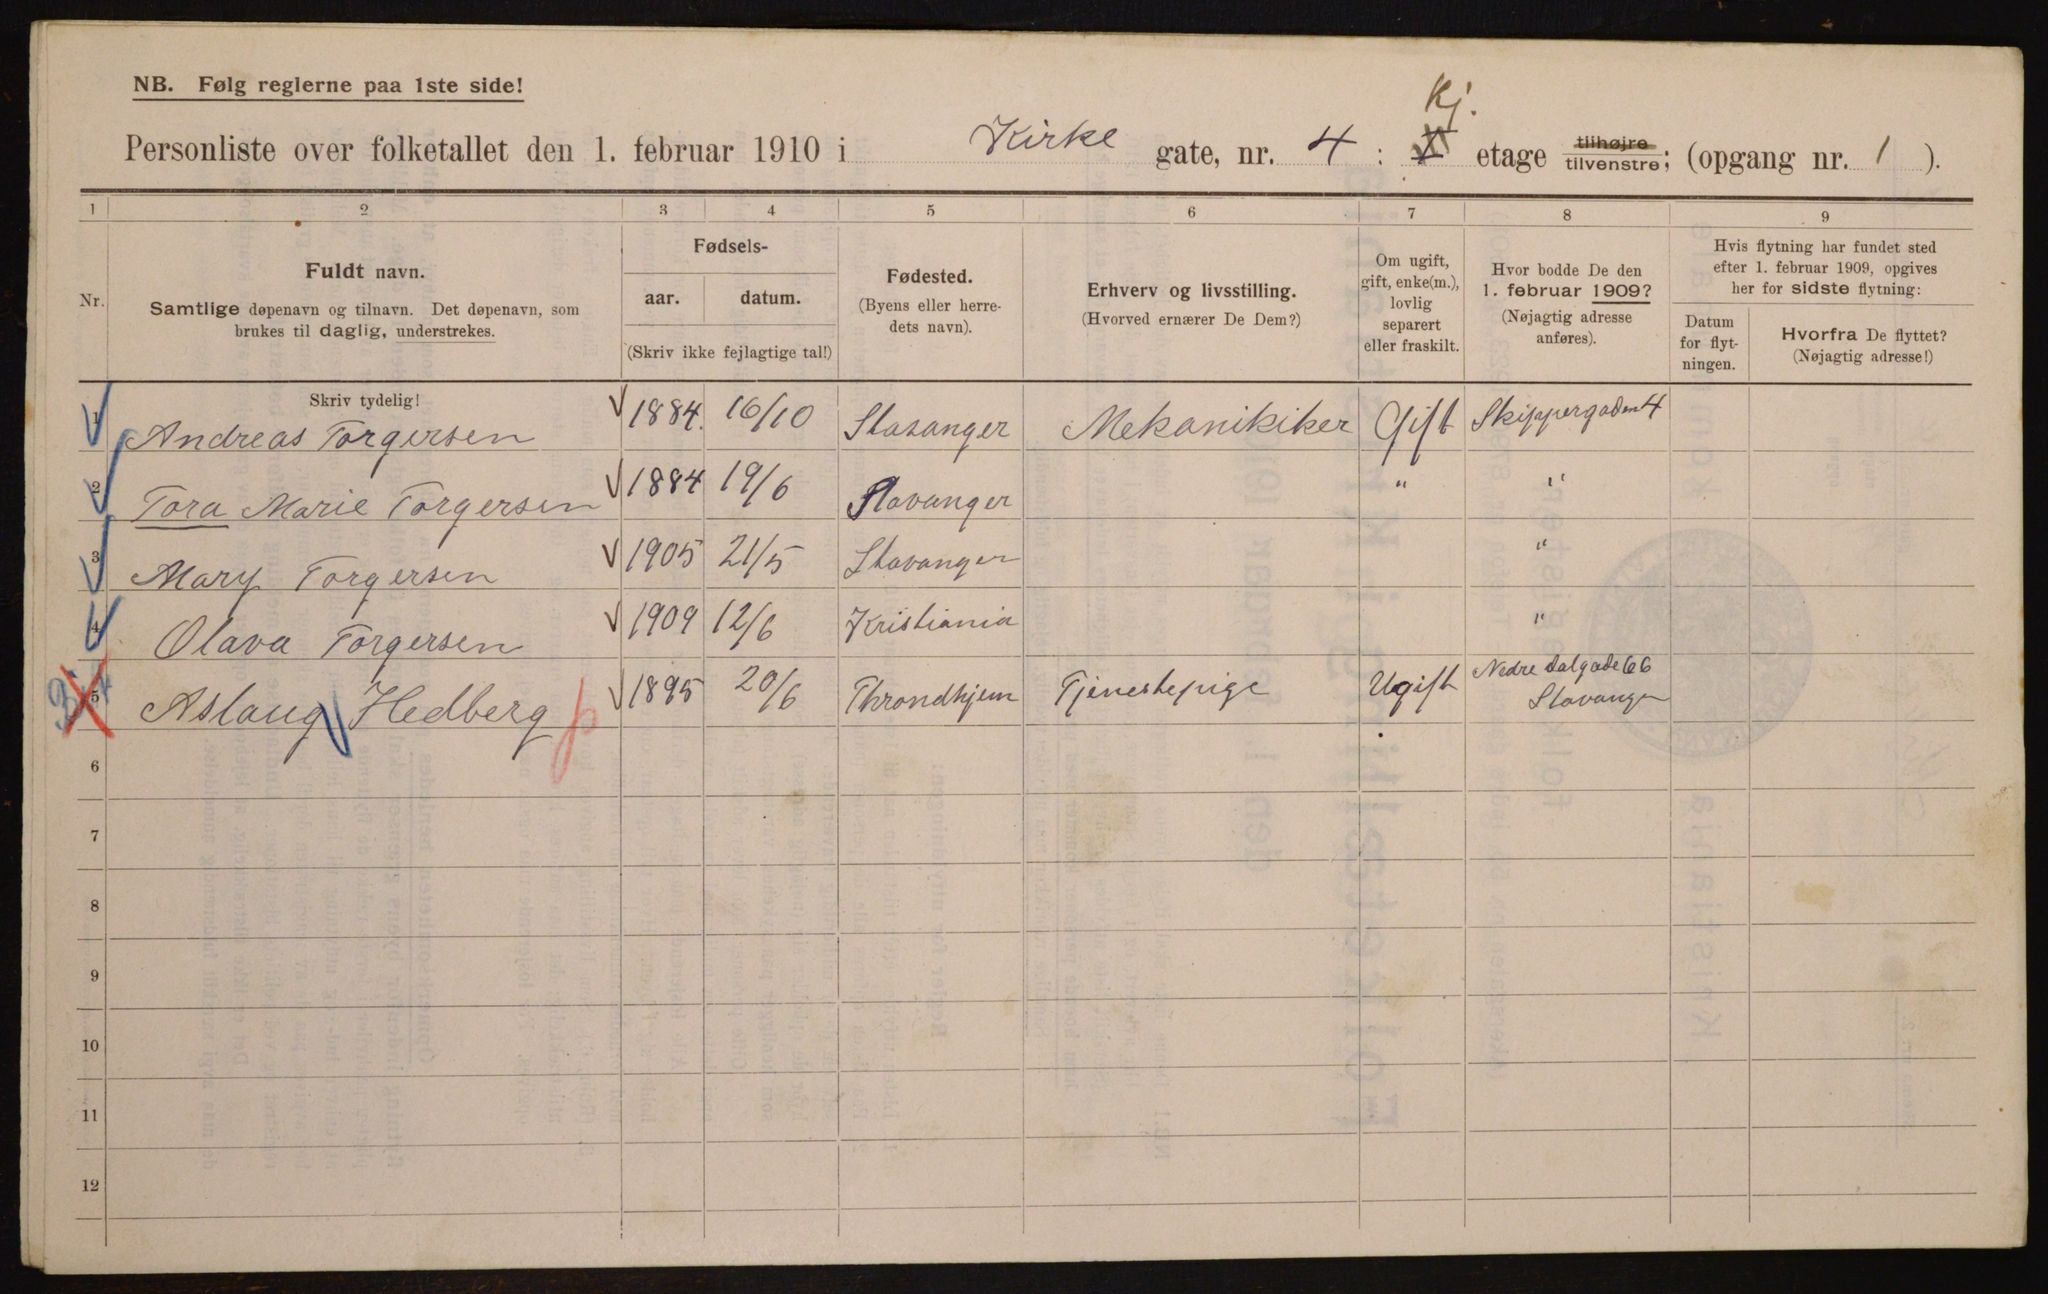 NB. Følg reglerne paa 1ste side!
Kj.
Personliste over folketallet den 1. februar 1910 i Kirke gate, nr. 4 : etage tilhøjre tilvenstre; (opgang nr. 1 ).
1 2 3 4 5 6 7 8 9
Nr.
Fuldt navn.
Samtlige døpenavn og tilnavn. Det døpenavn, som
brukes til daglig, understrekes.
Skriv tydelig!
Fødsels-
aar. datum.
(Skriv ikke fejlagtige tal!)
Fødested.
(Byens eller herre-
dets navn).
Erhverv og livsstilling.
(Hvorved ernærer De Dem?)
Om ugift,
gift, enke(m.),
lovlig
separert
eller fraskilt.
Hvor bodde De den
1. februar 1909?
(Nøjagtig adresse
anføres).
Hvis flytning har fundet sted
efter 1. februar 1909, opgives
her for sidste flytning:
Datum
for flyt-
ningen.
Hvorfra De flyttet?
(Nøjagtig adresse!)
1 Andreas Torgersen 1884. 16/10 Stavanger Mekanikiker Gift Skippergaden 4
2 Tora Marie Torgersen 1884 19/6 Stavanger " "
3 Mary Torgersen 1905 21/5 Stavanger "
4 Olava Torgersen 1909 12/6 Kristiania "
5 Aslaug Hedberg 1895 20/6 Throndhjem Tjenestepige Ugift Nedre Dalgade 66
Stavanger
6
7
8
9
10
11
12